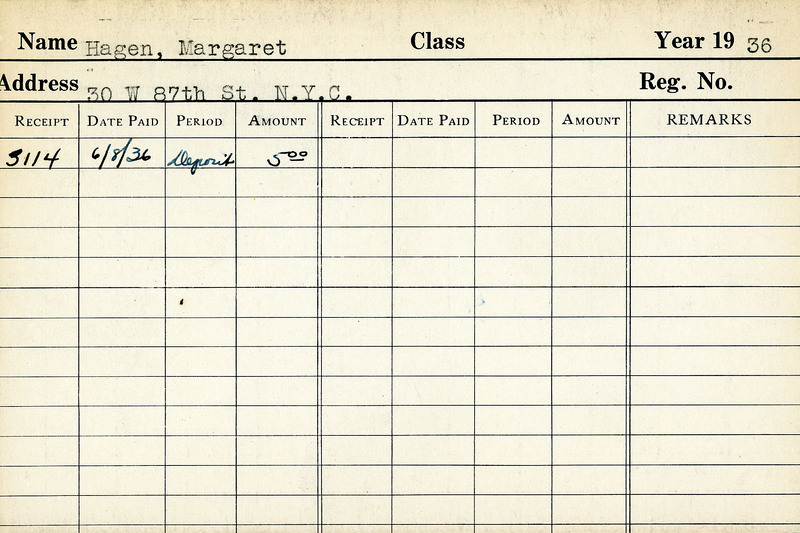 Name Hagen, Margaret Class Year 19 36
Address 30 W 87th St. N.Y.C. Reg. No.
RECEIPT DATE PAID PERIOD AMOUNT RECEIPT DATE PAID PERIOD AMOUNT REMARKS
3114 6/8/36 Deposit 5 00